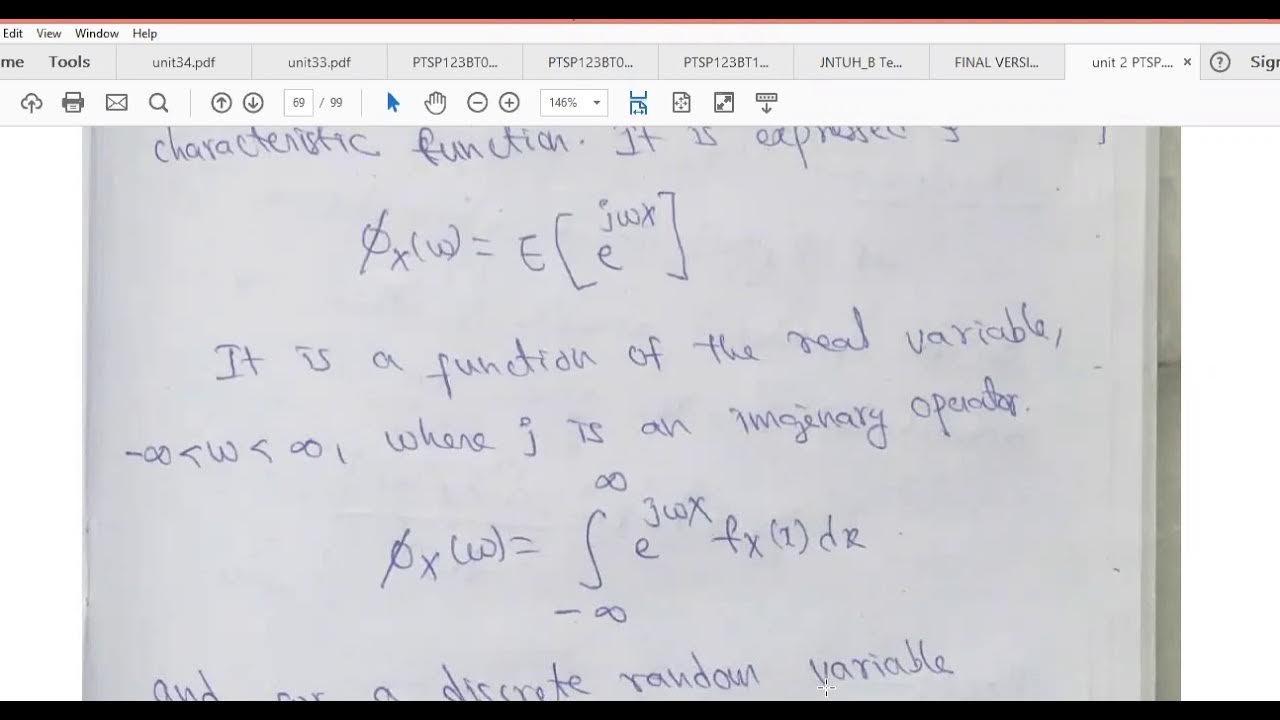 Edit View Window Help
me Tools unit34.pdf unit33.pdf PTSP123BT0... PTSP123BT0... PTSP123BT1... JNTUH_B Te... FINAL VERSI... unit 2 PTSP.... × ? Sign
69 / 99 146%
characteristic function. It is expressed
ϕx(ω) = E[e^jωX]
It is a function of the real variable,
-∞<ω<∞, where j is an imginary operator.
ϕx(ω) = ∫_{-∞}^{∞} e^jωX fx(x) dx
and a discrete random variable